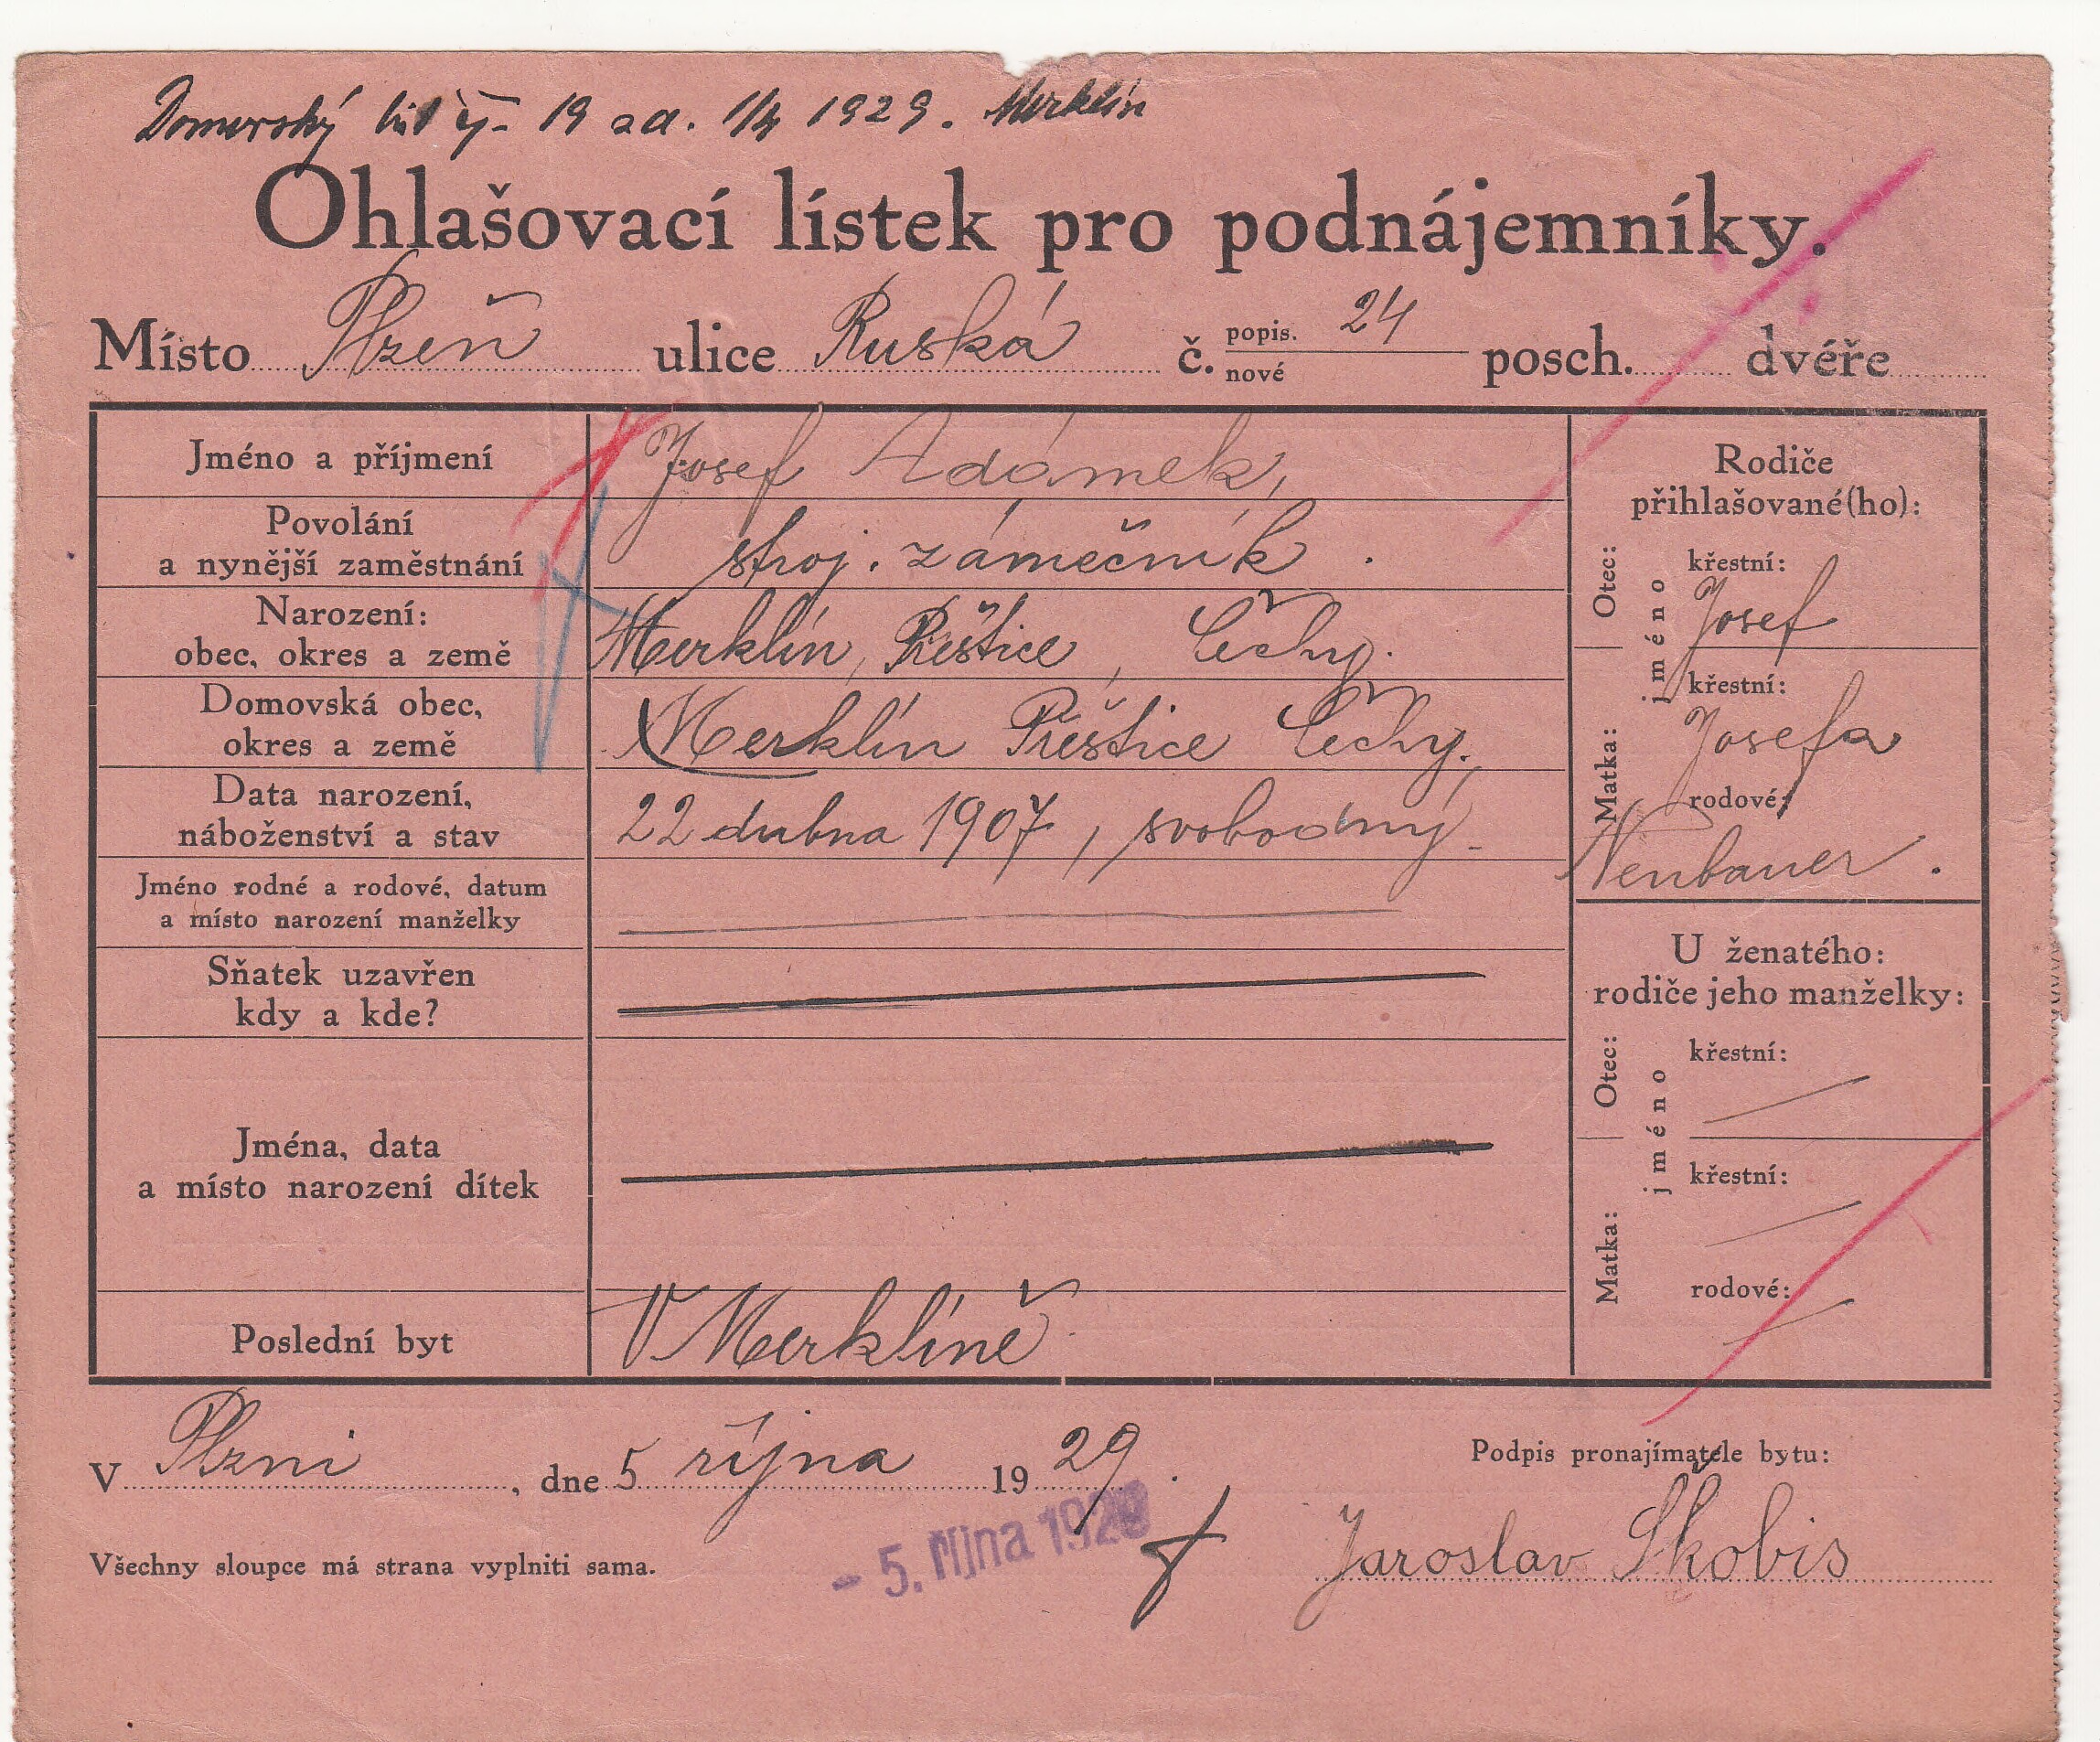 Domovský list čj. 19 ad. 1/4 1929. Merklín
Ohlašovací lístek pro podnájemníky.
Místo Plzeň ulice Ruská č. popis. 24 nové posch. dvéře
Jméno a příjmení Josef Adámek,
Povolání
a nynější zaměstnání stroj. zámečník.
Narození:
obec, okres a země Merklín, Přeštice, Čechy.
Domovská obec,
okres a země Merklín Přeštice Čechy.,
Data narození,
náboženství a stav 22 dubna 1907, svobodný
Jméno rodné a rodové, datum
a místo narození manželky
Sňatek uzavřen
kdy a kde?
Jména, data
a místo narození dítek
Poslední byt V Merklíně
Rodiče
přihlašované(ho):
Otec:
jméno
křestní:
Josef
Matka:
křestní:
Josefa
rodové:
Neubauer.
U ženatého:
rodiče jeho manželky:
Otec:
jméno
křestní:
Matka:
křestní:
rodové:
V Plzni, dne 5 října 1929.
Podpis pronajímatele bytu:
- 5. října 1929
Jaroslav Škobis
Všechny sloupce má strana vyplniti sama.